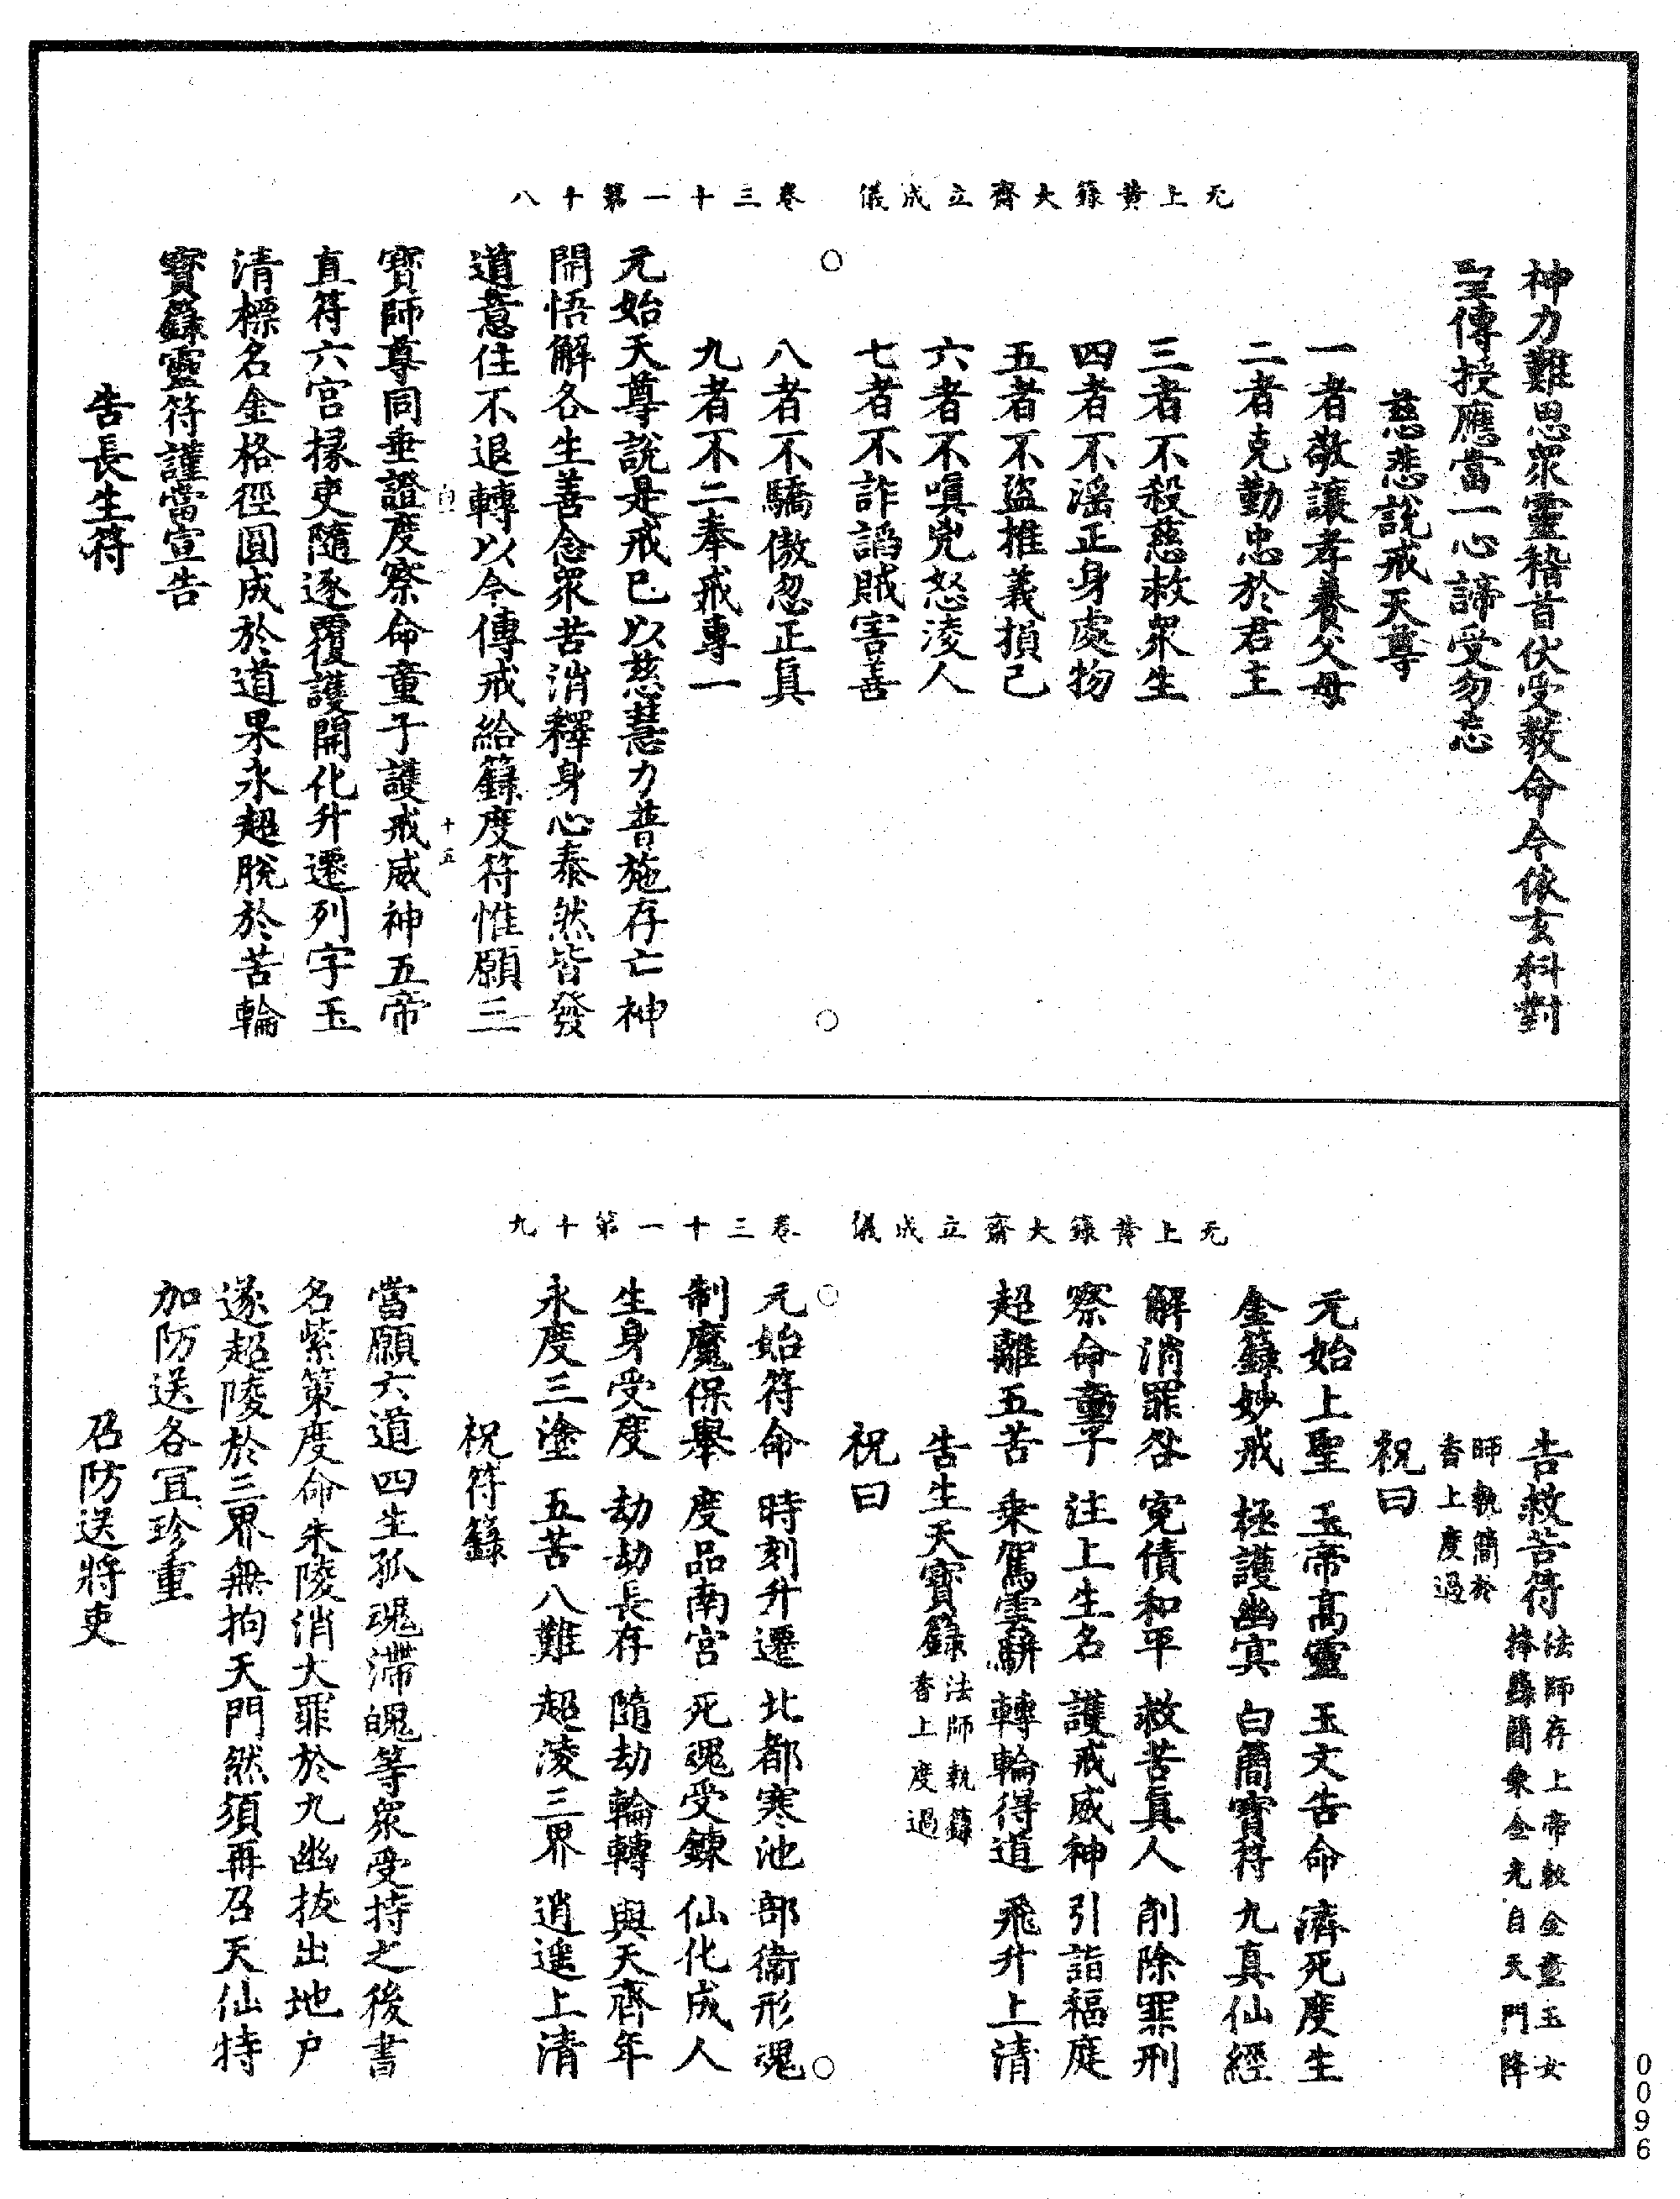 无上黃籙大齋立成儀　卷三十一第十八
神力難思眾靈稽首伏受教命今依玄科對
聖傳授應當一心諦受勿忘
慈悲說戒天尊
一者敬讓孝養父母
二者克勤忠於君主
三者不殺慈救眾生
四者不淫正身處物
五者不盜推義損己
六者不嗔兇怒淩人
七者不詐諂賊害善
八者不驕傲忽正真
九者不二奉戒專一
元始天尊說是戒已以慈慧力普施存亡神
開悟解各生善念眾苦消釋身心泰然皆發
道意住不退轉以今傳戒給籙度符惟願三
十五
寶師尊同垂證度察命童子護戒威神五帝
直符六宮掾吏隨逐覆護開化升遷列字玉
清標名金格徑圓成於道果永超脫於苦輪
寶籙靈符謹當宣告
告長生符
无上黃籙大齋立成儀　卷三十一第十九
告救苦符法師存上帝敕金童玉女捧籙簡乘金光自天門降
師執簡於香上度過
祝曰
元始上聖　玉帝高靈　玉文告命　濟死度生
金籙妙戒　極護幽冥　白簡寶符　九真仙經
解消罪咎　冤債和平　救苦真人　削除罪刑
察命童子　注上生名　護戒威神　引詣福庭
超離五苦　乘駕雲軿　轉輪得道　飛升上清
告生天寶籙法師執籙香上度過
祝曰
元始符命　時刻升遷　北都寒池　部衛形魂
制魔保舉　度品南宮　死魂受鍊　仙化成人
生身受度　劫劫長存　隨劫輪轉　與天齊年
永度三塗　五苦八難　超淩三界　逍遙上清
祝符籙
當願六道四生孤魂滯魄等眾受持之後書
名紫策度命朱陵消大罪於九幽拔出地戶
遂超陵於三界無拘天門然須再召天仙特
加防送各宜珍重
召防送將吏
0096